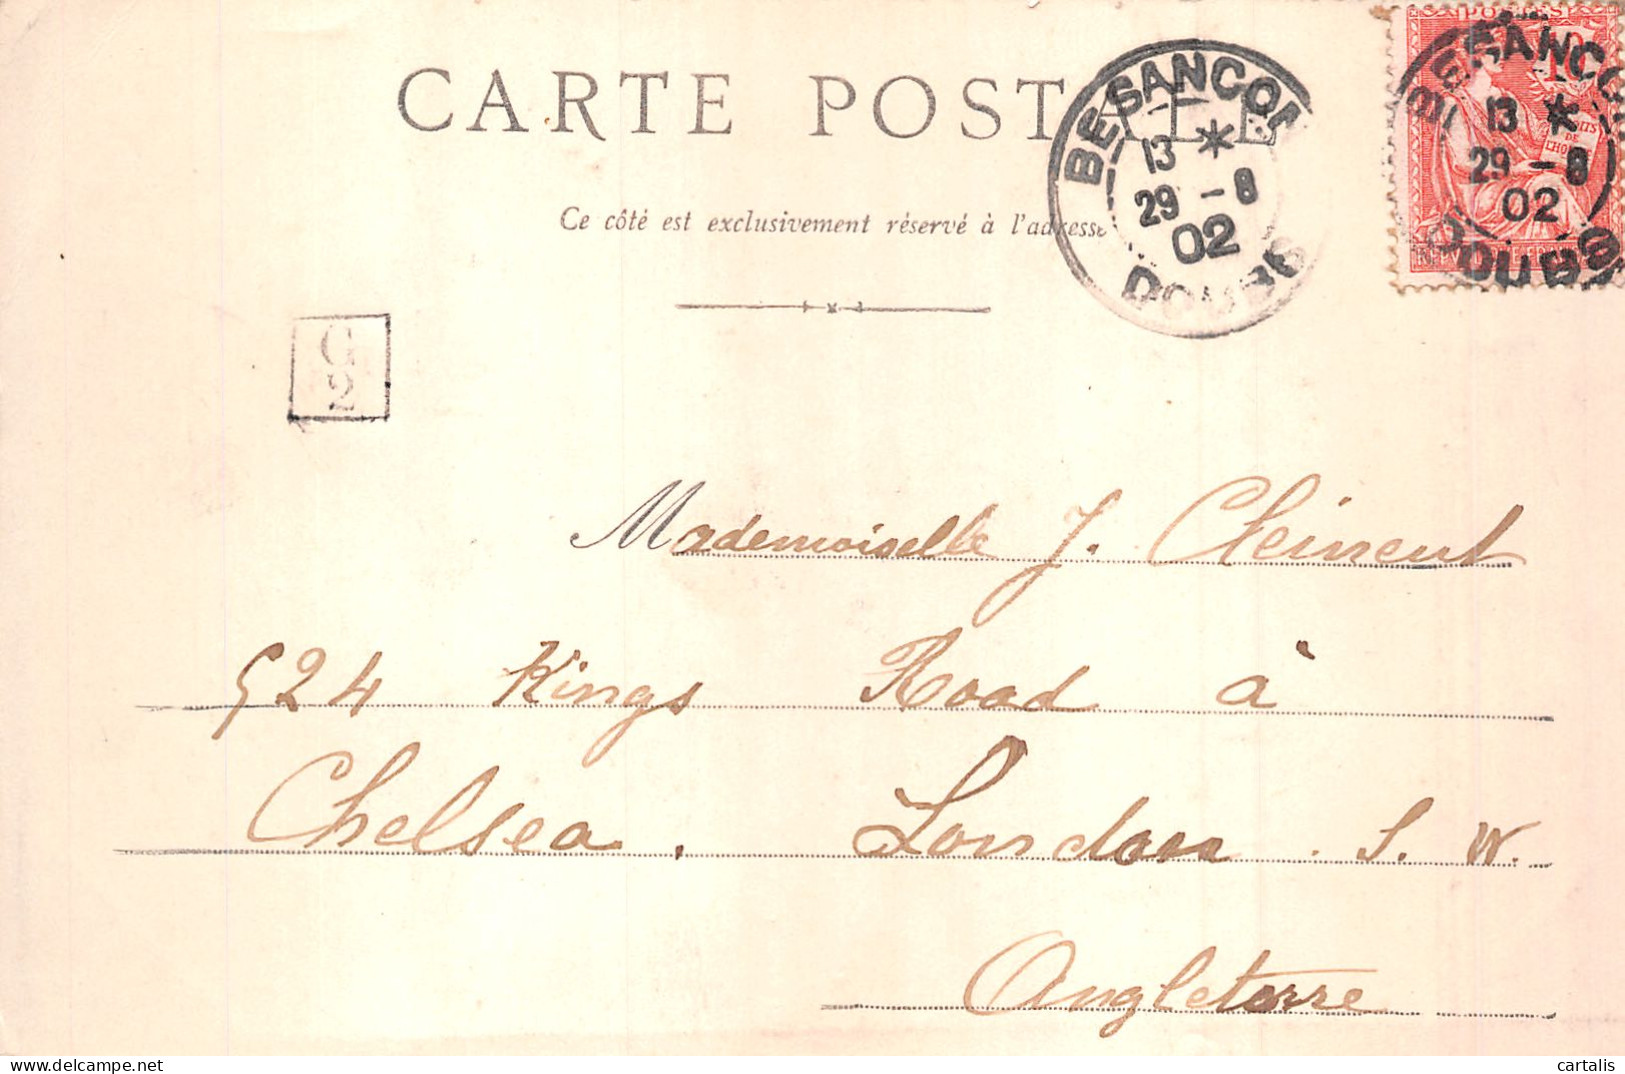 CARTE POSTALE
Ce côté est exclusivement réservé à l'adresse
BESANÇON
13 *
29 - 8
02
DOUBS
POSTES
BESANÇON
13 *
29 - 8
02
DOUBS
DE
L'HOMME
G
2
Mademoiselle J. Clément
524 Kings Road à
Chelsea. London. S. W.
Angleterre
cartalis